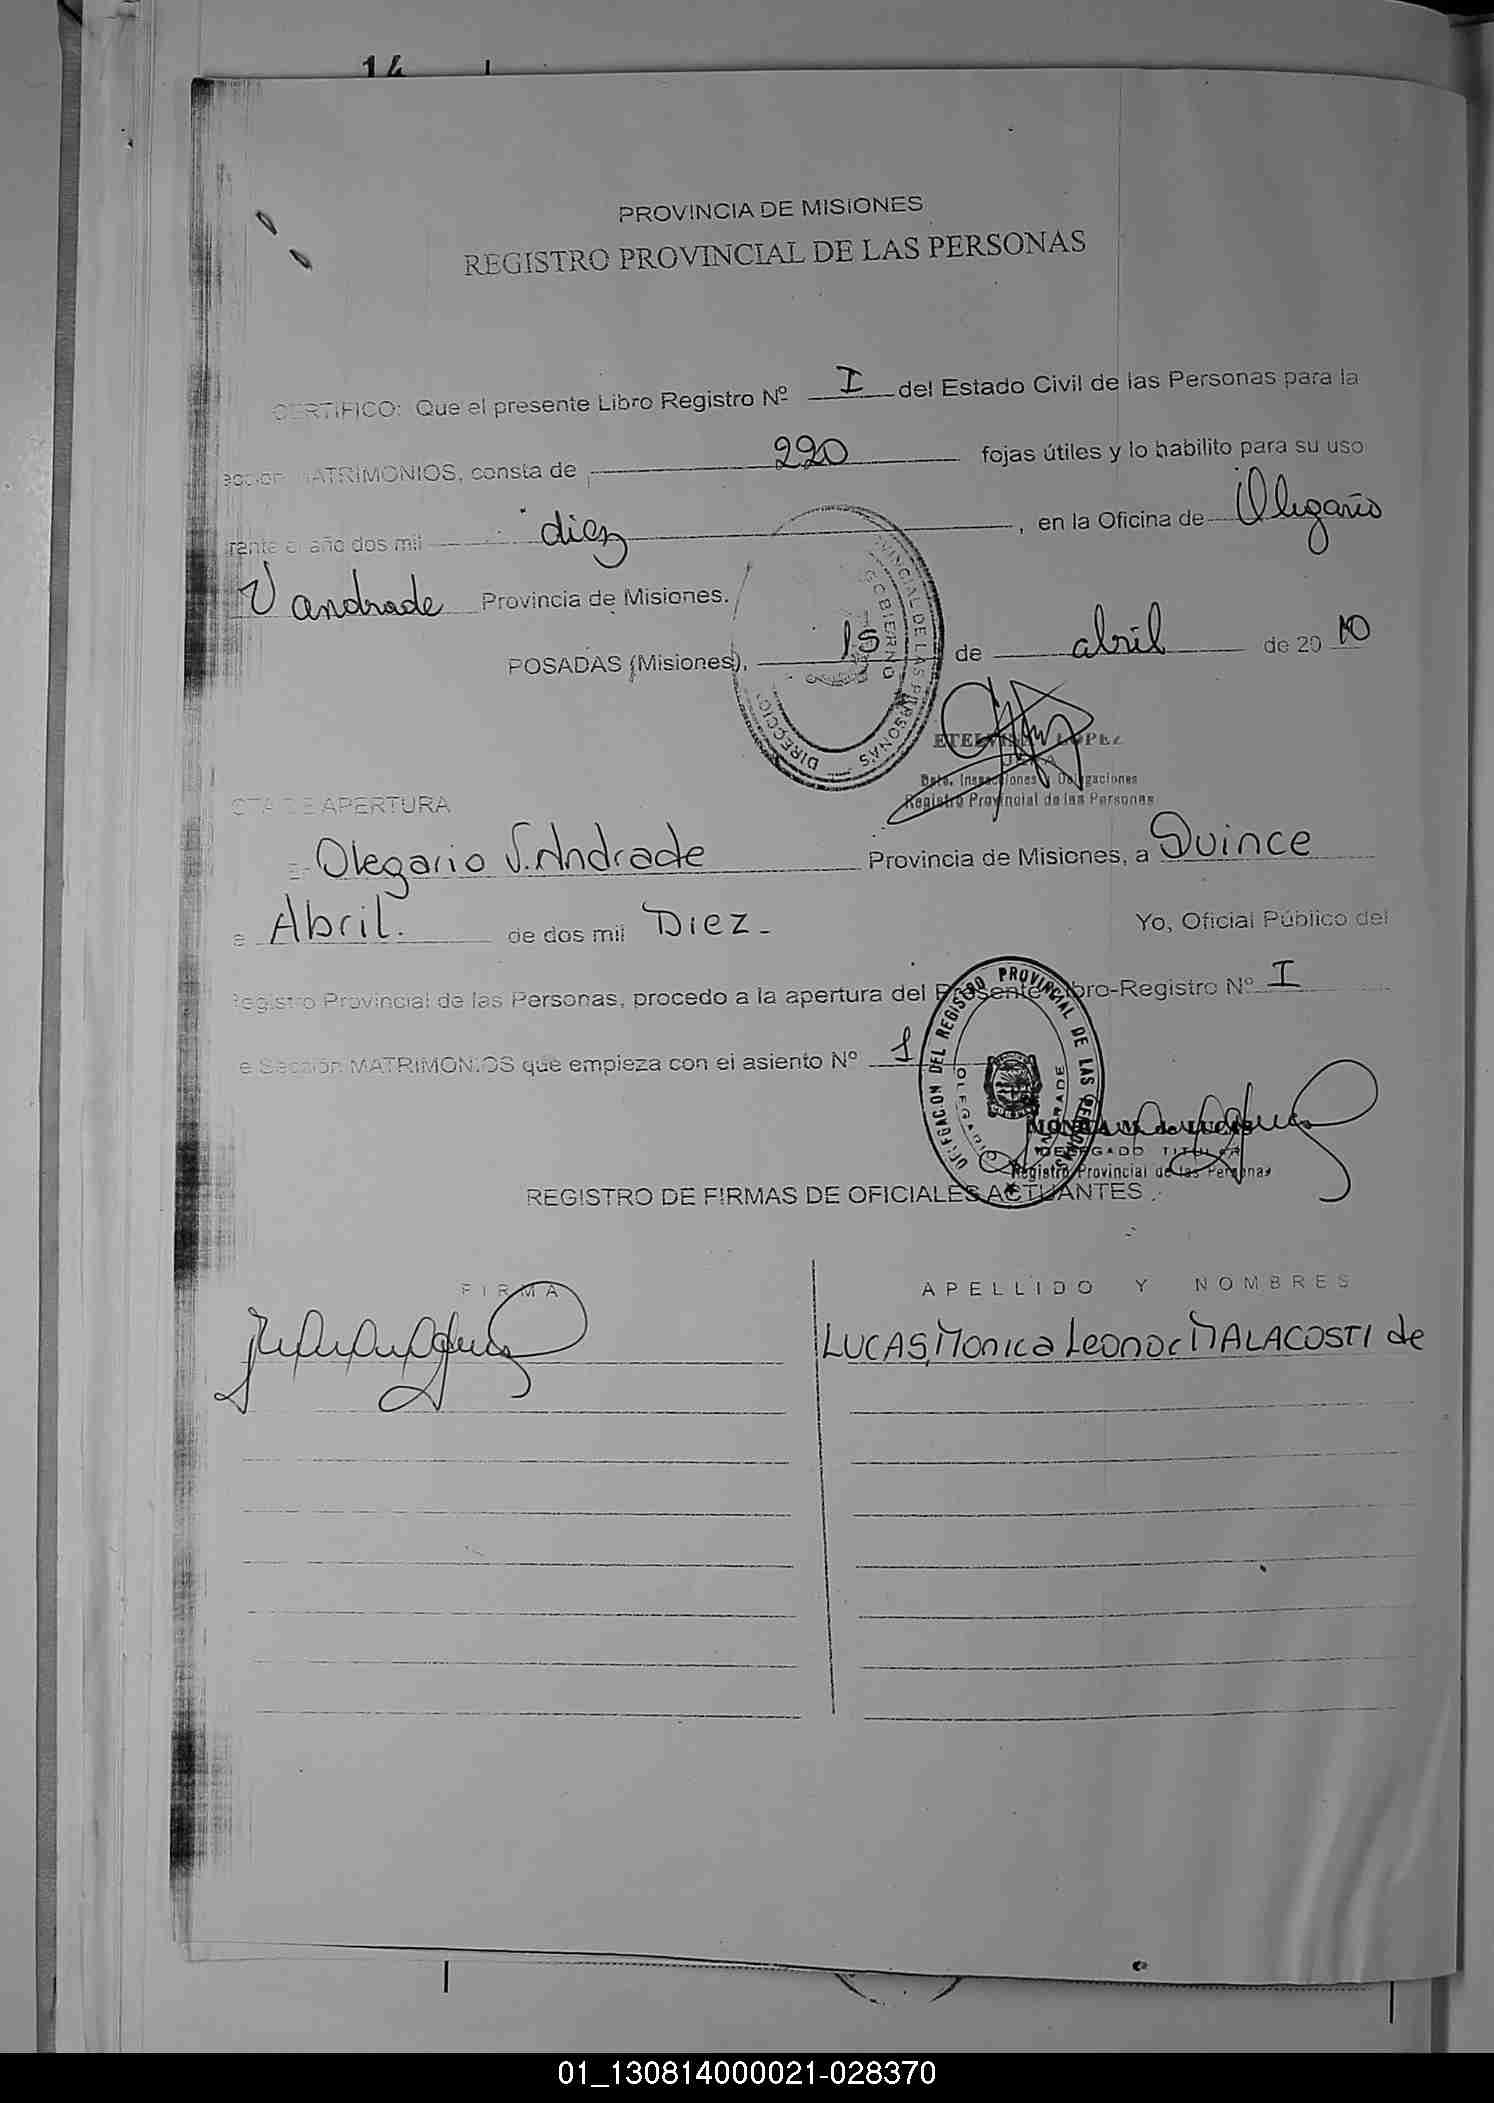 14
PROVINCIA DE MISIONES
REGISTRO PROVINCIAL DE LAS PERSONAS
CERTIFICO: Que el presente Libro Registro Nº I del Estado Civil de las Personas para la
ección MATRIMONIOS, consta de 220 fojas útiles y lo habilito para su uso
rante el año dos mil diez, en la Oficina de Olegario
V andrade Provincia de Misiones.
POSADAS (Misiones), 15 de abril de 2010
DIRECCION PROVINCIAL DE LAS PERSONAS
GOBIERNO
LOPEZ
Dpto. Inspecciones y Delegaciones
Registro Provincial de las Personas
CTA DE APERTURA
Olegario V. Andrade Provincia de Misiones, a Quince
e Abril. de dos mil Diez.- Yo, Oficial Público del
Registro Provincial de las Personas, procedo a la apertura del Presente Libro-Registro Nº I
e Sección MATRIMONIOS que empieza con el asiento Nº 1
DELEGACION DEL REGISTRO PROVINCIAL DE LAS PERSONAS
OLEGARIO ANDRADE
MONICA M. de LUCAS
DELEGADO TITULAR
Registro Provincial de las Personas
REGISTRO DE FIRMAS DE OFICIALES ACTUANTES
FIRMA APELLIDO Y NOMBRES
LUCAS, Monica Leonor MALACOSTI de
01_130814000021-028370